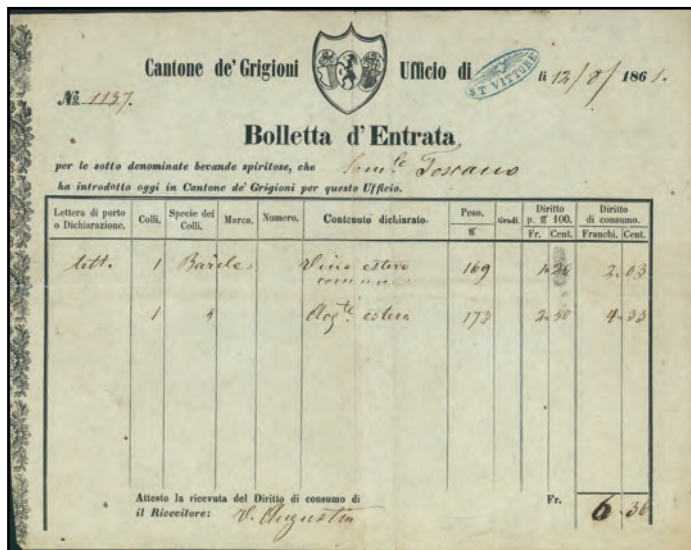 Cantone de' Grigioni Ufficio di ST VITTORE li 12/8/ 1861.
No 1137.
Bolletta d'Entrata
per le sotto denominate bevande spiritose, che Toscano
ha introdotto oggi in Cantone de' Grigioni per questo Ufficio.
Lettera di porto o Dichiarazione. Colli. Specie dei Colli. Marca. Numero. Contenuto dichiarato. Peso. ℔ Gradi. Diritto p. ℔ 100. Fr. Cent. Diritto di consumo. Franchi. Cent.
lett. 1 Barile Vino estero 169 1.20 2.03
comune
1 " Acq.te estera 173 2.50 4.33
Attesto la ricevuta del Diritto di consumo di Fr. 6.36
il Ricevitore: V. Augustin